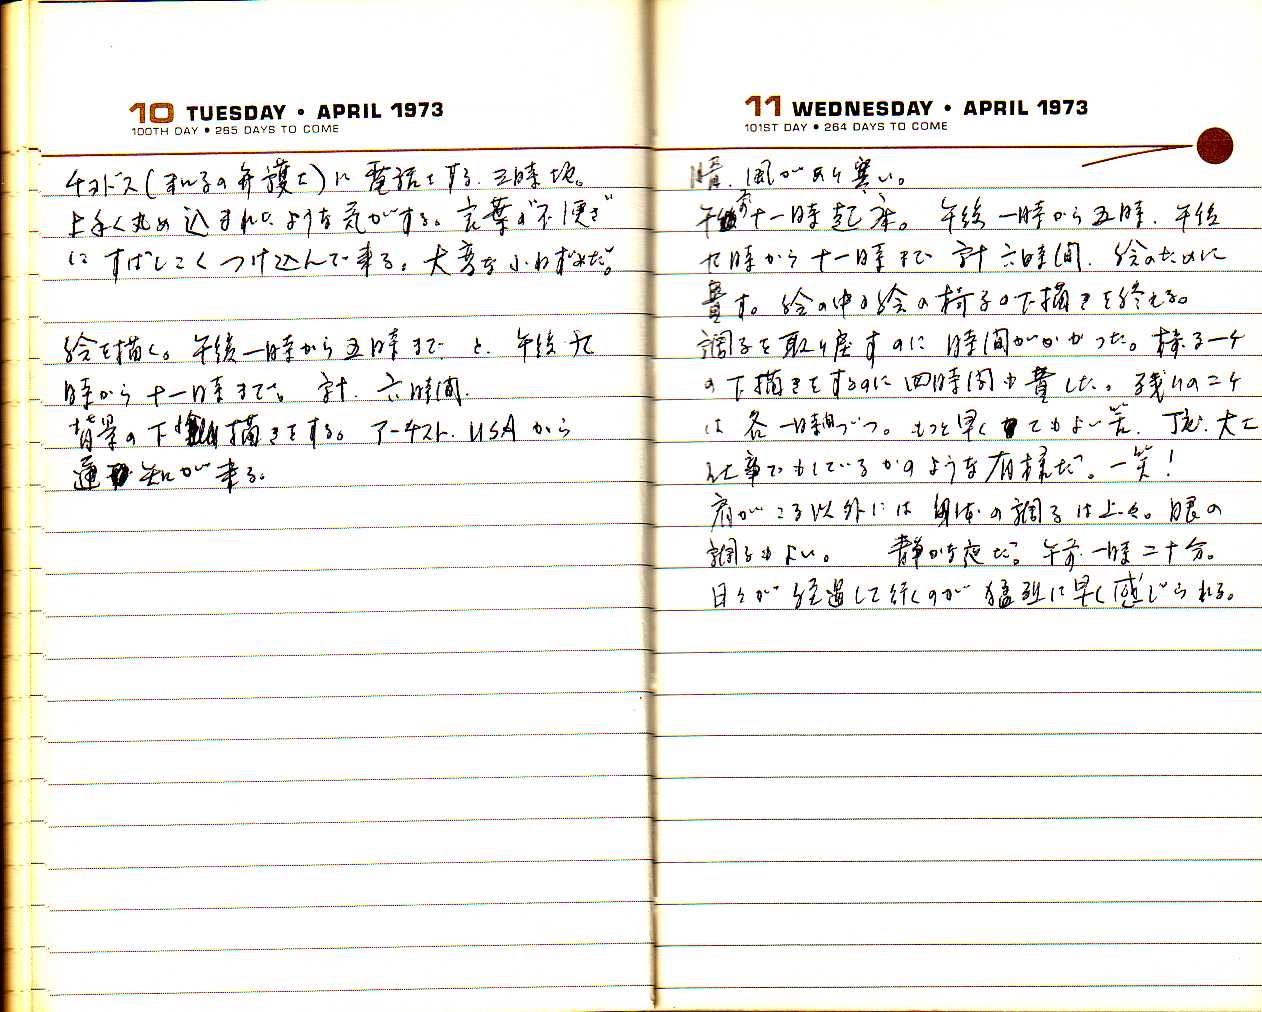 10 TUESDAY • APRIL 1973
100TH DAY • 265 DAYS TO COME
チョドス(の弁護士)に電話をする。五時頃。
上手く丸め込まれたような気がする。言葉が不便さ
にすばしこくつけ込んで来る。大変な小ねずみだ。
絵を描く。午後一時から五時まで と、午後九
時から十一時まで。計、六時間。
背景の下描きをする。アーチスト.USAから
通知が来る。
11 WEDNESDAY • APRIL 1973
101ST DAY • 264 DAYS TO COME
晴、風があり寒い。
午前十一時起床。午後一時から五時、午後
九時から十一時まで 計六時間、絵のために
費す。絵の中の絵の椅子の下描きを終える。
調子を取り戻すのに時間がかかった。椅子一ケ
の下描きをするのに四時間も費した。残りの二ケ
は各一時間づつ。もっと早くてもよい筈、丁度、大工
仕事でもしているかのような有様だ。一笑!
肩がこる以外には身体の調子は上々。眼の
調子もよい。 静かな夜だ。午前一時二十分。
日々が経過して行くのが猛烈に早く感じられる。